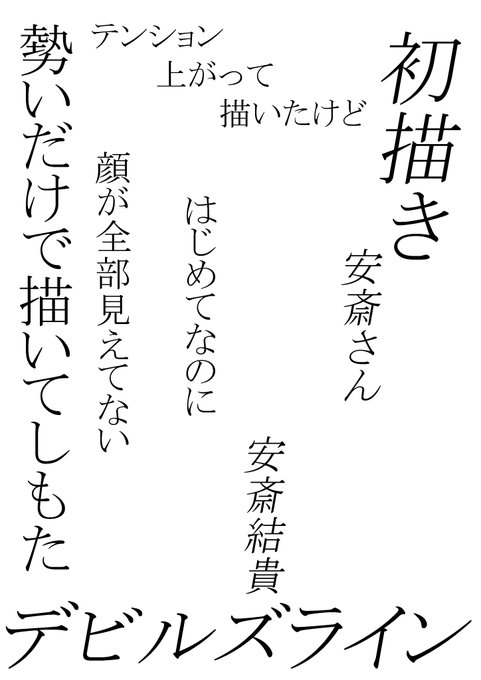 初描き
安斎さん
安斎結貴
テンション
上がって
描いたけど
はじめてなのに
顔が全部見えてない
勢いだけで描いてしもた
デビルズライン